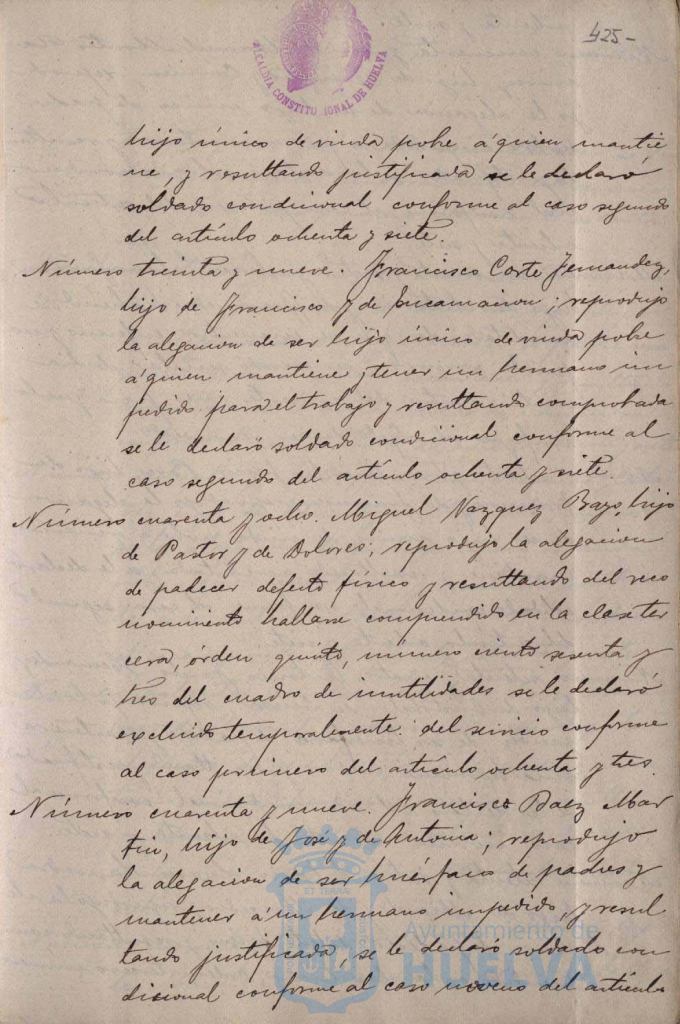 425-
ALCALDIA CONSTITUCIONAL DE HUELVA
hijo único de viuda pobre á quien mantie
ne, y resultando justificada se le declaró
soldado condicional conforme al caso segundo
del artículo ochenta y siete.
Número treinta y nueve. Francisco Corte Fernandez,
hijo de Francisco y de Encarnacion; reprodujo
la alegacion de ser hijo único de viuda pobre
á quien mantiene y tener un hermano im
pedido para el trabajo y resultando comprobada
se le declaró soldado condicional conforme al
caso segundo del artículo ochenta y siete.
Número cuarenta y ocho. Miguel Vazquez Bayo, hijo
de Pastor y de Dolores; reprodujo la alegacion
de padecer defecto físico y resultando del reco
nocimiento hallarse comprendido en la clase ter
cera, órden quinto, número ciento sesenta y
tres del cuadro de inutilidades se le declaró
excluido temporalmente del servicio conforme
al caso primero del artículo ochenta y tres.
Número cuarenta y nueve. Francisco Baez Mar
tin, hijo de José y de Antonia; reprodujo
la alegacion de ser huérfano de padres y
mantener á un hermano impedido, y resul
tando justificada, se le declaró soldado con
dicional conforme al caso noveno del artículo
Ayuntamiento de
HUELVA